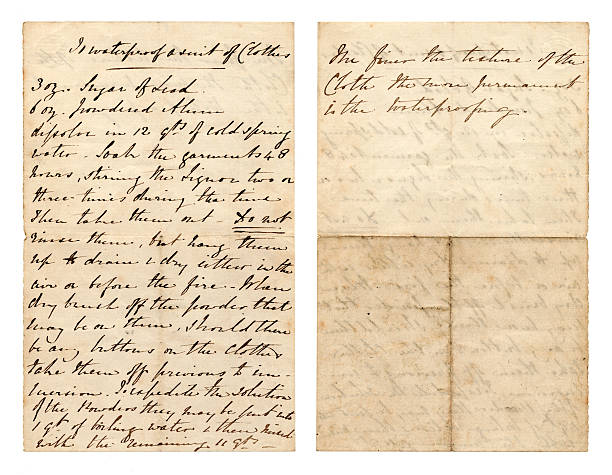 To waterproof a suit of Clothes
3 oz. Sugar of Lead.
6 oz. Powdered Alum
dissolve in 12 qts of cold spring
water. Soak the garments 48
hours, stirring the liquor two or
three times during that time
then take them out - Do not
rinse them, but hang them
up to drain & dry either in the
air or before the fire - When
dry brush off the powder that
may be on them, should there
be any buttons on the clothes
take them off previous to im-
mersion. To expedite the solution
of the Powders they may be put into
1 qt of boiling water & then mixed
with the remaining 11 qts -
The finer the texture of the
Cloth the more permanent
is the waterproofing.